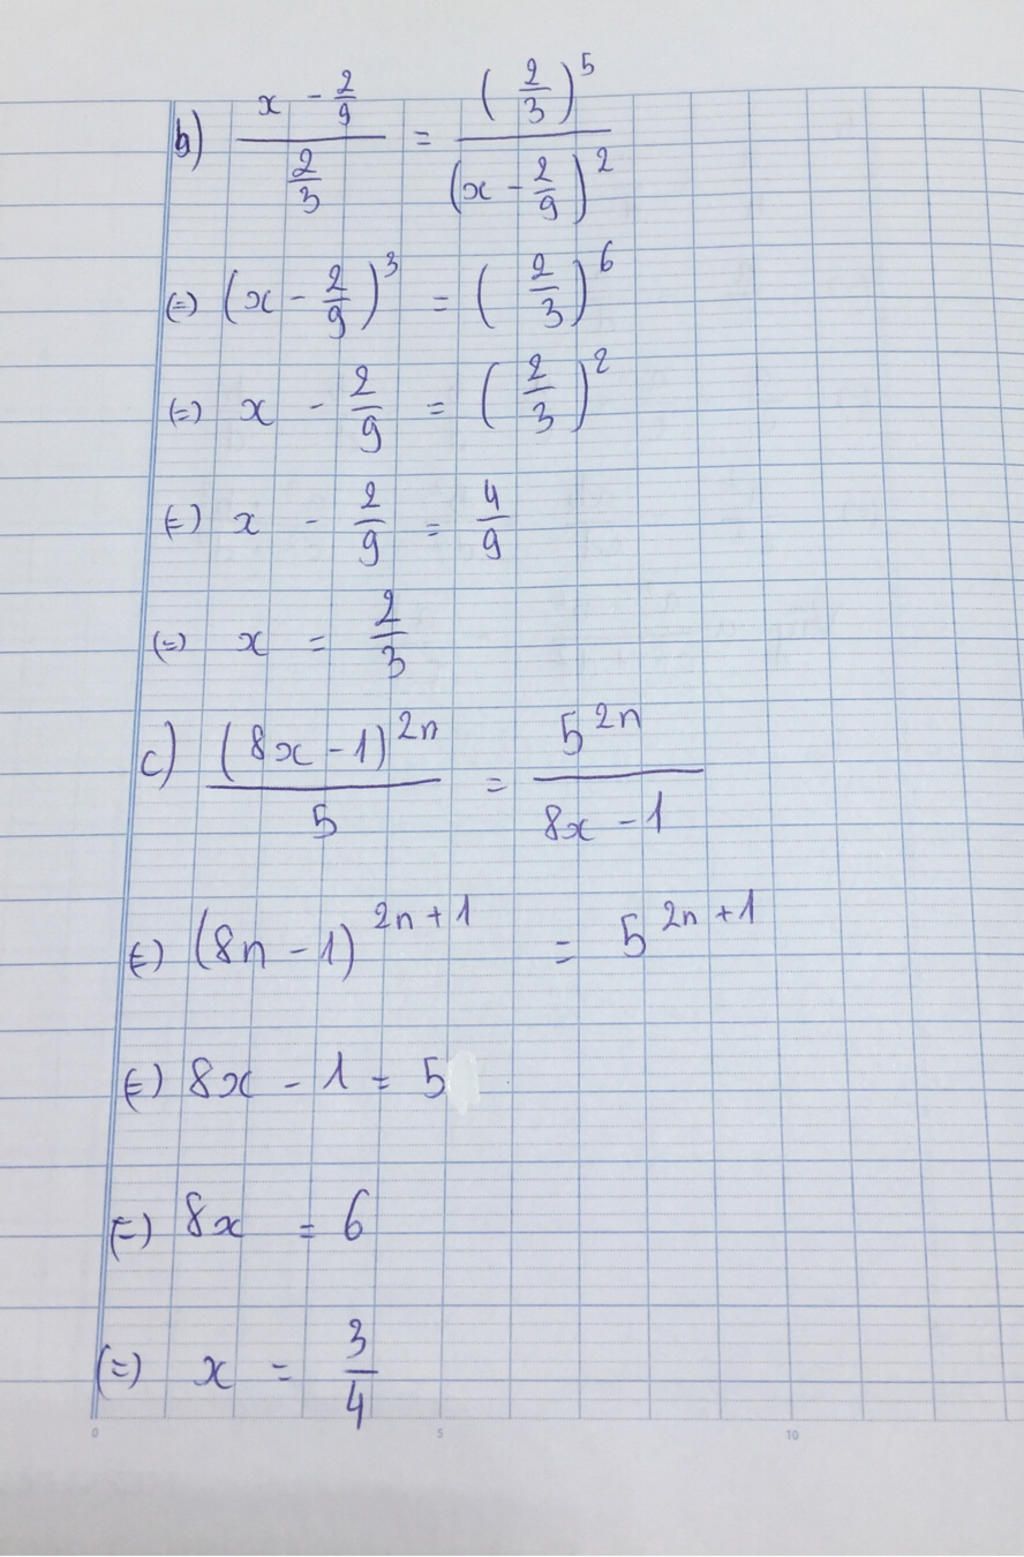 b) \frac{x - \frac{2}{9}}{\frac{2}{3}} = \frac{(\frac{2}{3})^5}{(x - \frac{2}{9})^2}
(=) (x - \frac{2}{9})^3 = (\frac{2}{3})^6
(=) x - \frac{2}{9} = (\frac{2}{3})^2
(=) x - \frac{2}{9} = \frac{4}{9}
(=) x = \frac{2}{3}
c) \frac{(8x - 1)^{2n}}{5} = \frac{5^{2n}}{8x - 1}
(=) (8n - 1)^{2n + 1} = 5^{2n + 1}
(=) 8x - 1 = 5
(=) 8x = 6
(=) x = \frac{3}{4}
0 5 10